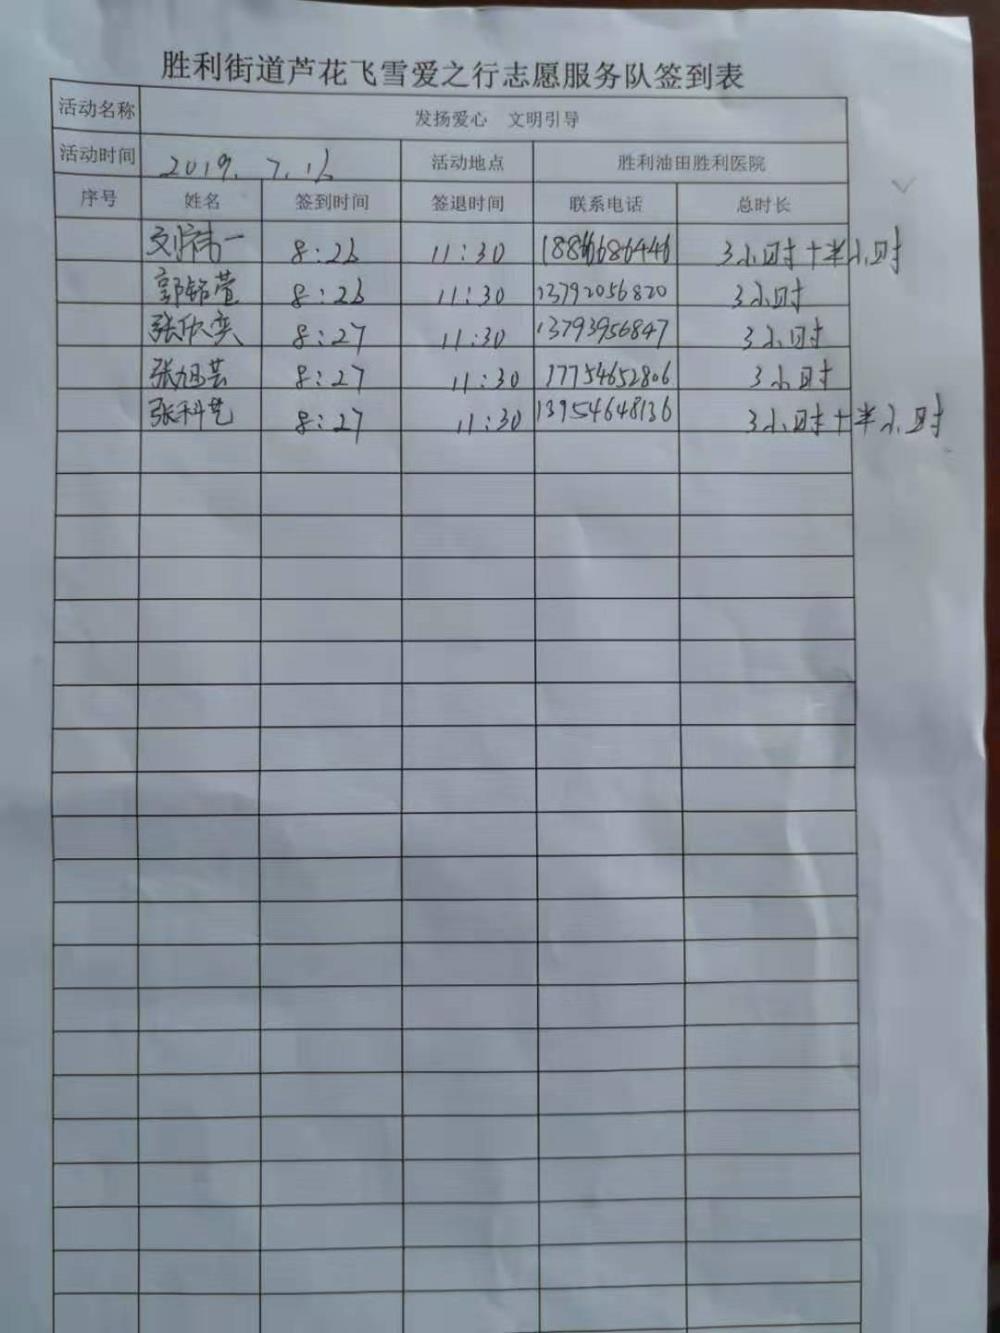 胜利街道芦花飞雪爱之行志愿服务队签到表
活动名称 发扬爱心 文明引导
活动时间 2019.7.16 活动地点 胜利油田胜利医院
序号 姓名 签到时间 签退时间 联系电话 总时长
刘 一 8:26 11:30 18866686446 3小时+半小时
郭铭萱 8:26 11:30 13792056820 3小时
张欣奕 8:27 11:30 13793956847 3小时
张旭芸 8:27 11:30 17754652806 3小时
张科艺 8:27 11:30 13954648136 3小时+半小时